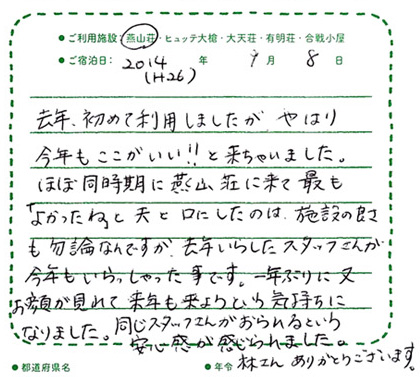 ●ご利用施設：燕山荘・ヒュッテ大槍・大天荘・有明荘・合戦小屋
●ご宿泊日：2014 年 9月 8日
(H26)
去年、初めて利用しましたが やはり
今年もここがいい!!と来ちゃいました。
ほぼ同時期に燕山荘に来て最も
「よかったね」と夫と口にしたのは、施設の良さ
も勿論なんですが、去年いらしたスタッフさんが
今年もいらっしゃった事です。一年ぶりに又
お顔が見れて来年も来ようという気持ちに
なりました。同じスタッフさんがおられるという
安心感が感じられました。
●都道府県名 ●年令 林さん ありがとうございます